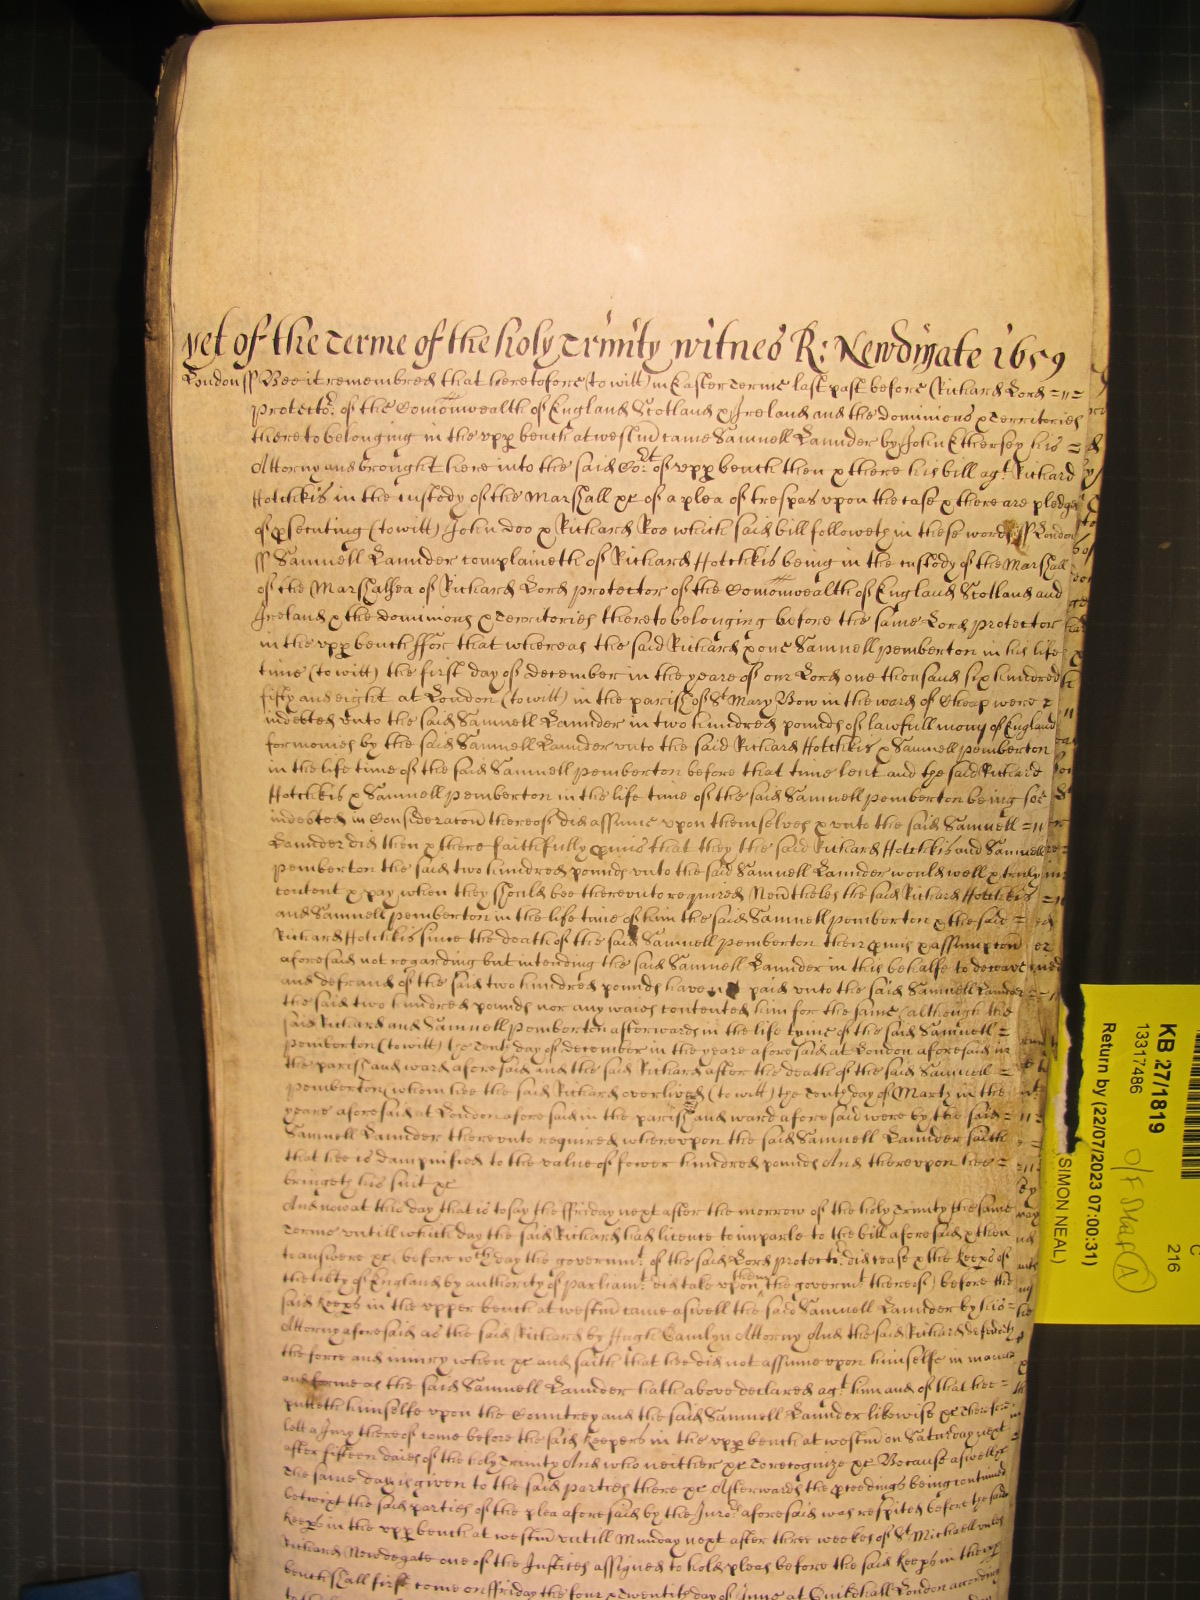 yet of the Terme of the holy Trinity witnes R: Newdigate 1659
London ss Bee it remembred that heretofore (to witt) in Easter Terme last past before Richard Lord
Protector. of the Comonwealth of England Scotland & Ireland and the dominions & Territories
thereto belonging in the upp bench at westm came Samuell Launder by John Ethersey his
Attorny and brought here into the said Cort of upp bench then & there his bill agt. Richard
Hotchkis in the custody of the Marshall &c of a plea of trespas upon the case & there are pledges
of psecuting (to witt) John Doo & Richard Roo which said bill followeth in these words ss London
ss Samuell Launder complaineth of Richard Hotchkis being in the custody of the Marshall
of the Marshalsea of Richard Lord protector of the Comonwealth of England Scotland and
Ireland & the dominions & Territories thereto belonging before the same Lord Protector
in the upp bench ffor that whereas the said Richard & one Samuell Pemberton in his life
time (to witt) the first day of December in the yeare of our Lord one thousand six hundred
fifty and eight at London (to witt) in the parish of St Mary Bow in the ward of Cheap were
indebted unto the said Samuell Launder in two hundred pounds of lawfull mony of England
for monies by the said Samuell Launder unto the said Richard Hotchkis & Samuell pemberton
in the life time of the said Samuell pemberton before that time lent and the said Richard
Hotchkis & Samuell pemberton in the life time of the said Samuell pemberton being soe
indebted in Consideracon thereof did assume upon themselves & unto the said Samuell
Launder did then & there faithfully pmis that they the said Richard Hotchkis and Samuell
pemberton the said two hundred pounds unto the said Samuell Launder would well & truly
content & pay when they should bee thereunto required Nevtheles the said Richard Hotchkis
and Samuell pemberton in the life time of him the said Samuell pemberton & the said
Richard Hotchkis since the death of the said Samuell pemberton their pmis & assumpcon
aforesaid not regarding but intending the said Samuell Launder in this behalfe to deceave
and defraud of the said two hundred pounds have not paid unto the said Samuell Launder
the said two hundred pounds nor any waies contented him for the same (although the
said Richard and Samuell pemberton afterwards in the life tyme of the said Samuell
pemberton (to witt) the tenth day of December in the yeare aforesaid at London aforesaid in
the parish and ward aforesaid and the said Richard after the death of the said Samuell
pemberton (whom hee the said Richard overlived) (to witt) the tenth day of March in the
yeare aforesaid at London aforesaid in the parish and ward aforesaid were by the said
Samuell Launder thereunto required whereupon the said Samuell Launder saith
that hee is dampnified to the value of fower hundred pounds And thereupon hee
bringeth his suit &c
And now at this day that is to say the ffriday next after the morrow of the holy Trinity the same
Terme untill which day the said Richard had licence to imparle to the bill aforesaid & then
to answere &c (before wch day the governmt. of the said Lord Protectr. did cease & the keeps of
the libty of England by authority of parliamt. did take upon them the governmt thereof) before the
said keeps in the upper bench at westm came aswell the said Samuell Launder by his
Attorny aforesaid as the said Richard by Hugh Camlyn Attorny And the said Richard defendeth
the force and iniury when &c and saith that hee did not assume upon himselfe in manner
and forme as the said Samuell Launder hath above declared agt him and of that hee
putteth himselfe upon the Countrey and the said Samuell Launder likewise &c Therefore
lett a Jury thereof come before the said keepers in the upp bench at westm on Saturday next
after fifteen daies of the holy Trinity And who neither &c to recognize &c Because aswell &c
The same day is given to the said parties there &c Afterwards the pceedings being continued
betwixt the said parties of the plea aforesaid by the Juro. aforesaid was respited before the said
keeps in the upp bench at westm untill Munday next after three weekes of St Michaell unles
Richard Newdegate one of the Justices assigned to hold pleas before the said keeps in the upp
bench shall first come on ffriday the four & twentith day of June at Guildhall London according
KB 27/1819
13317486
216
Return by (22/07/2023 07:00:31)
SIMON NEAL)
A